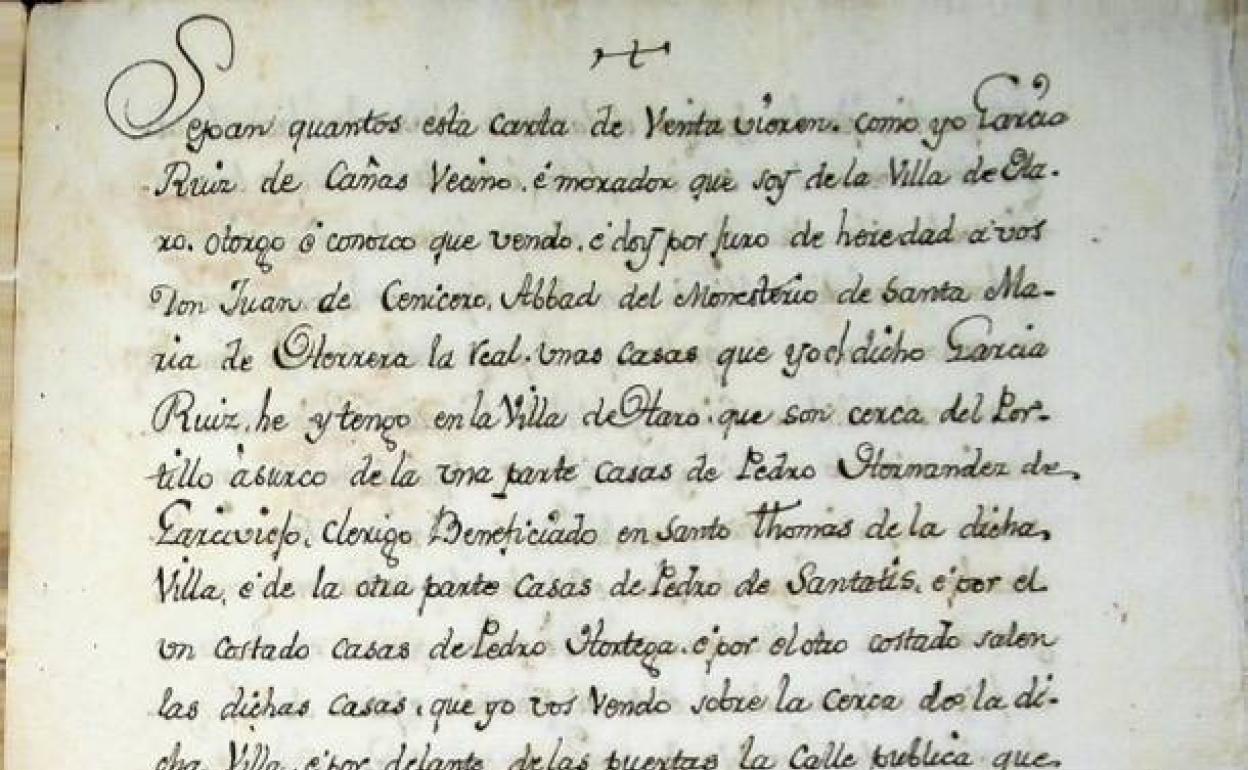 Sepan quantos esta carta de Venta vieren. como yo Garcia
Ruiz de Cañas Vecino. é morador que soy de la Villa de Ha-
ro. otorgo é conozco que vendo. é doy por juro de heredad á vos
Don Juan de Cenicero. Abbad del Monesterio de Santa Ma-
ria de Herrera la real. unas casas que yo el dicho Garcia
Ruiz. he y tengo en la Villa de Haro. que son cerca del Por-
tillo á surco de la una parte casas de Pedro Hernandez de
Clerigo Beneficiado en Santo Thomas de la dicha
Villa. é de la otra parte casas de Pedro de Santatis. é por el
un costado casas de Pedro Hortega. é por el otro costado salen
las dichas casas. que yo vos Vendo sobre la cerca de la di-
cha Villa. é por delante de las puertas la Calle publica que